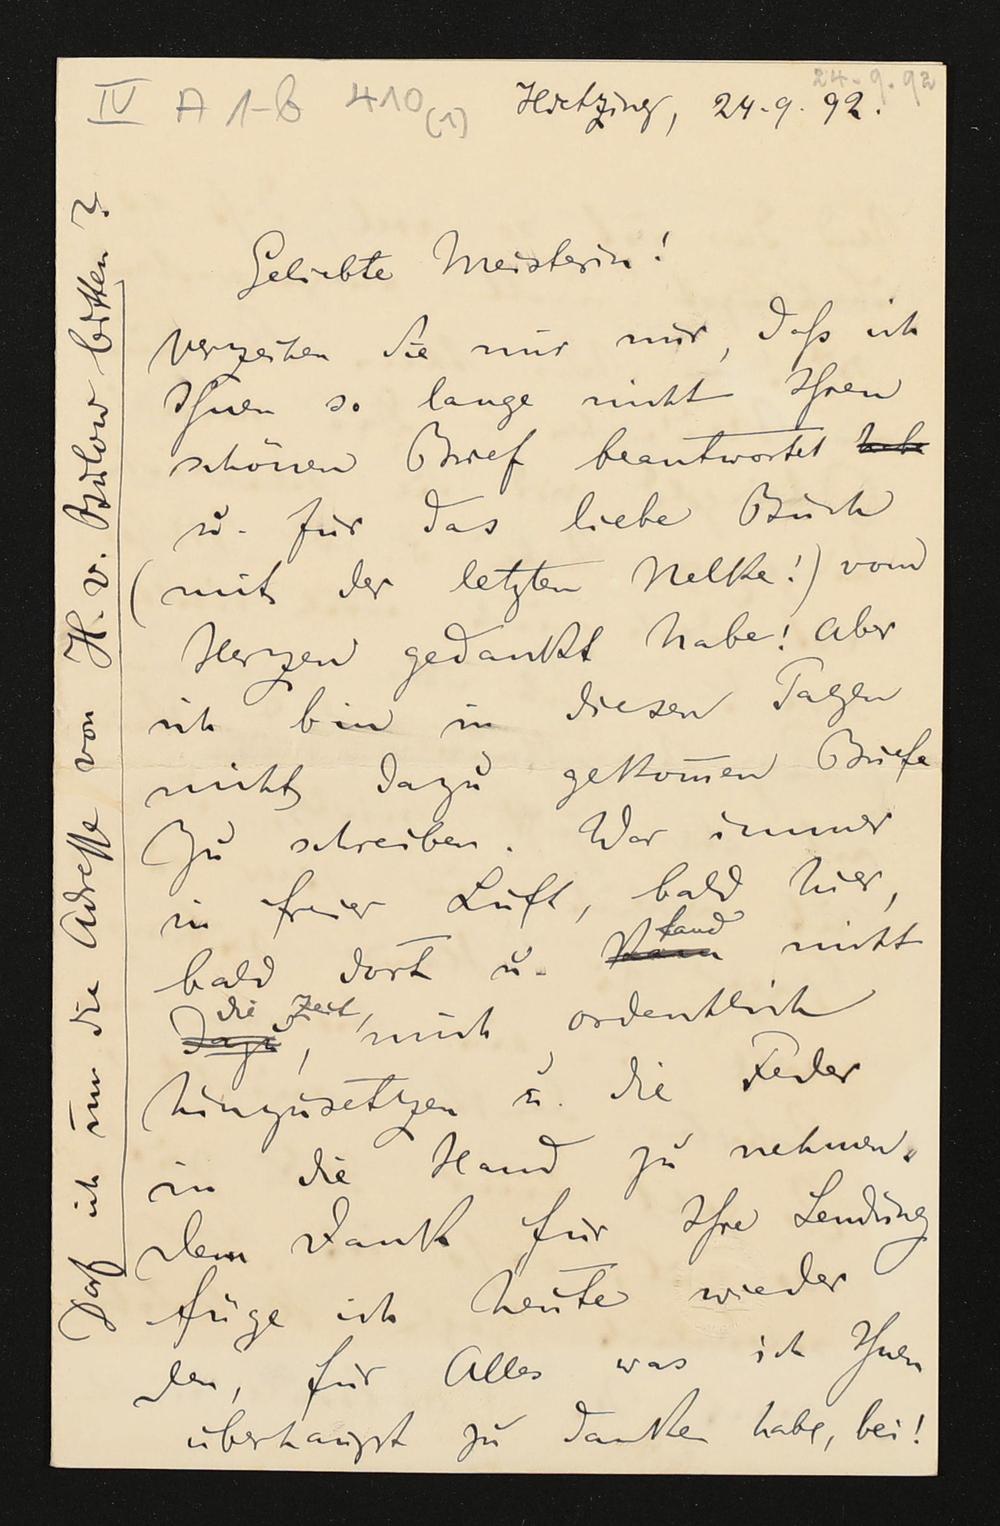 24-9.92
IV A 1-b 410 (1) Hietzing, 24.9.92.
Geliebte Meisterin!
Verzeihen Sie mir nur, daß ich
Ihnen so lange nicht Ihren
schönen Brief beantwortet habe
u. für das liebe Buch
(mit der letzten Nelke!) vom
Herzen gedankt habe! Aber
ich bin in diesen Tagen
nicht dazu gekom̄en Briefe
zu schreiben. War immer
in freier Luft, bald hier,
bald dort u. kam fand nicht
dazu die Zeit, mich ordentlich
hinzusetzen u. die Feder
in die Hand zu nehmen.
Dem Dank für Ihre Sendung
füge ich heute wieder
den, für Alles was ich Ihnen
überhaupt zu danken habe, bei!
Darf ich um die Adresse von H. v. Bülow bitten?